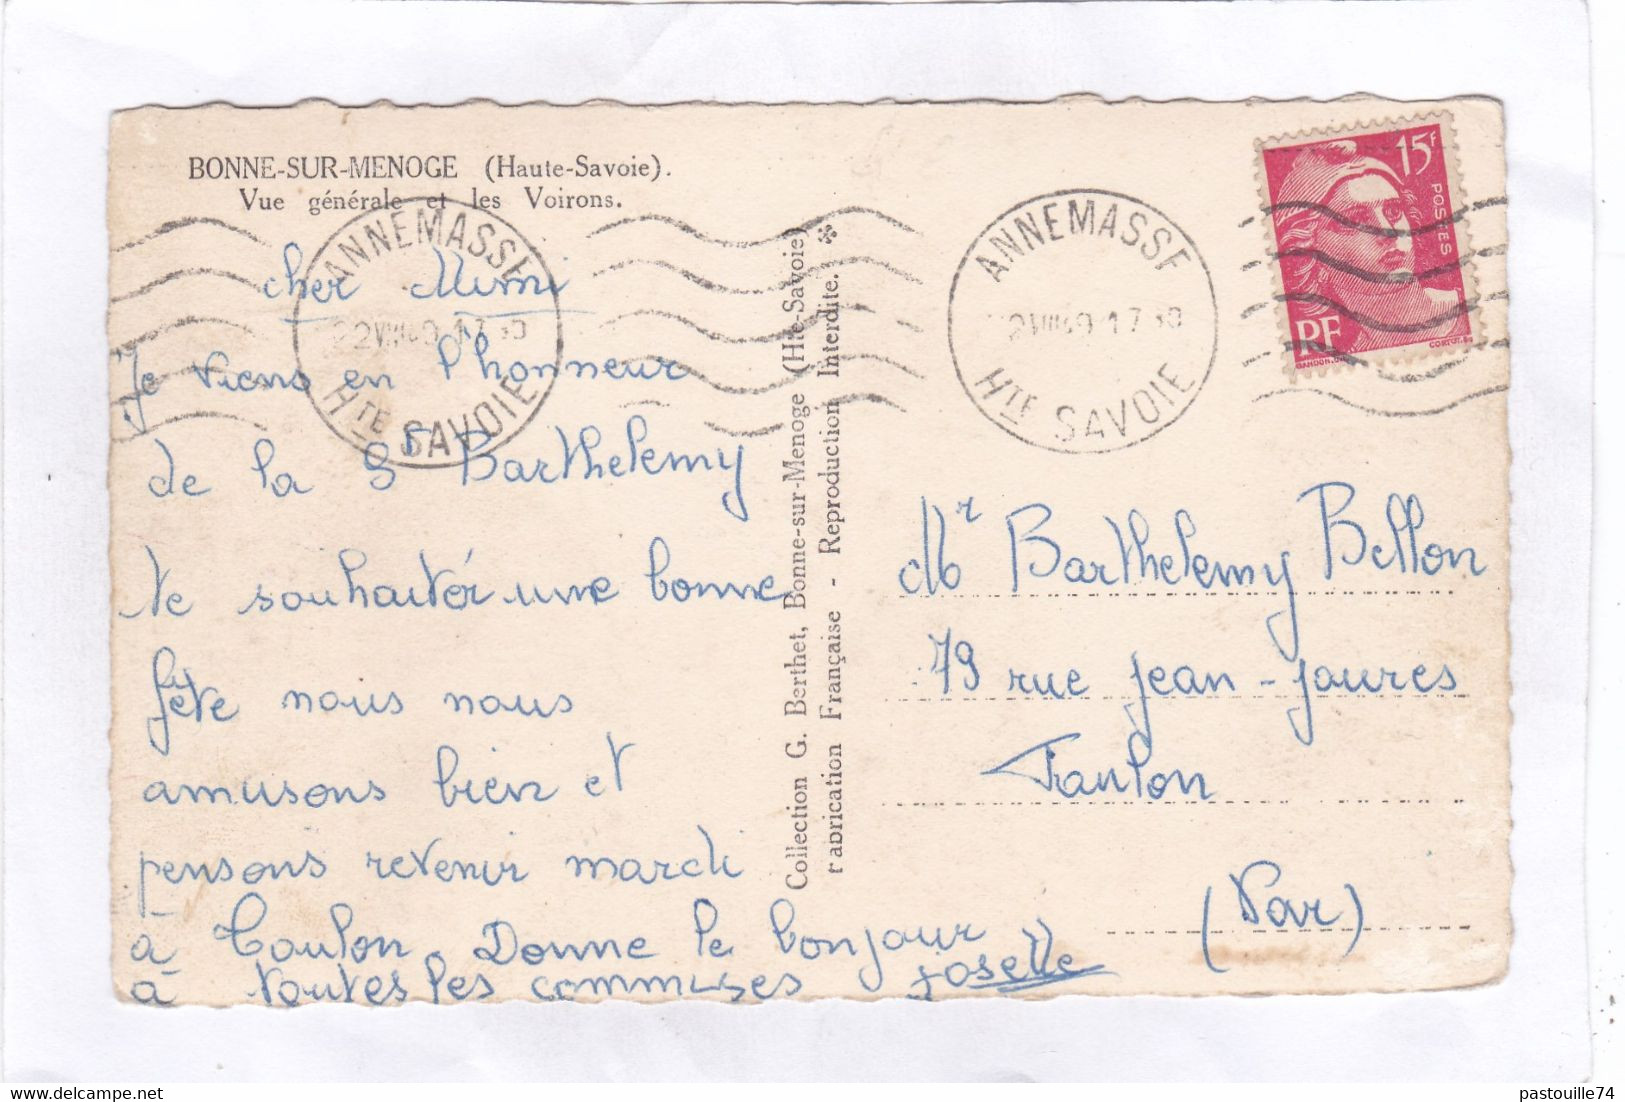 BONNE-SUR-MENOGE (Haute-Savoie).
Vue générale et les Voirons.
ANNEMASSE
22 VIII 49 - 17 30
HTE SAVOIE
cher Mimi
Je viens en l'honneur
de la St Barthelemy
te souhaiter une bonne
fête nous nous
amusons bien et
pensons revenir mardi
à Toulon. Donne le bonjour
à toutes les commuses
joselle
Collection G. Berthet, Bonne-sur-Menoge (Hte-Savoie)
Fabrication Française - Reproduction Interdite.
ANNEMASSE
2 VIII 49 - 17 30
HTE SAVOIE
15F
POSTES
RF
GANDON.
CORTOT.SC
Mr Barthelemy Bellon
79 rue jean-jaures
Toulon
(Var)
pastouille74